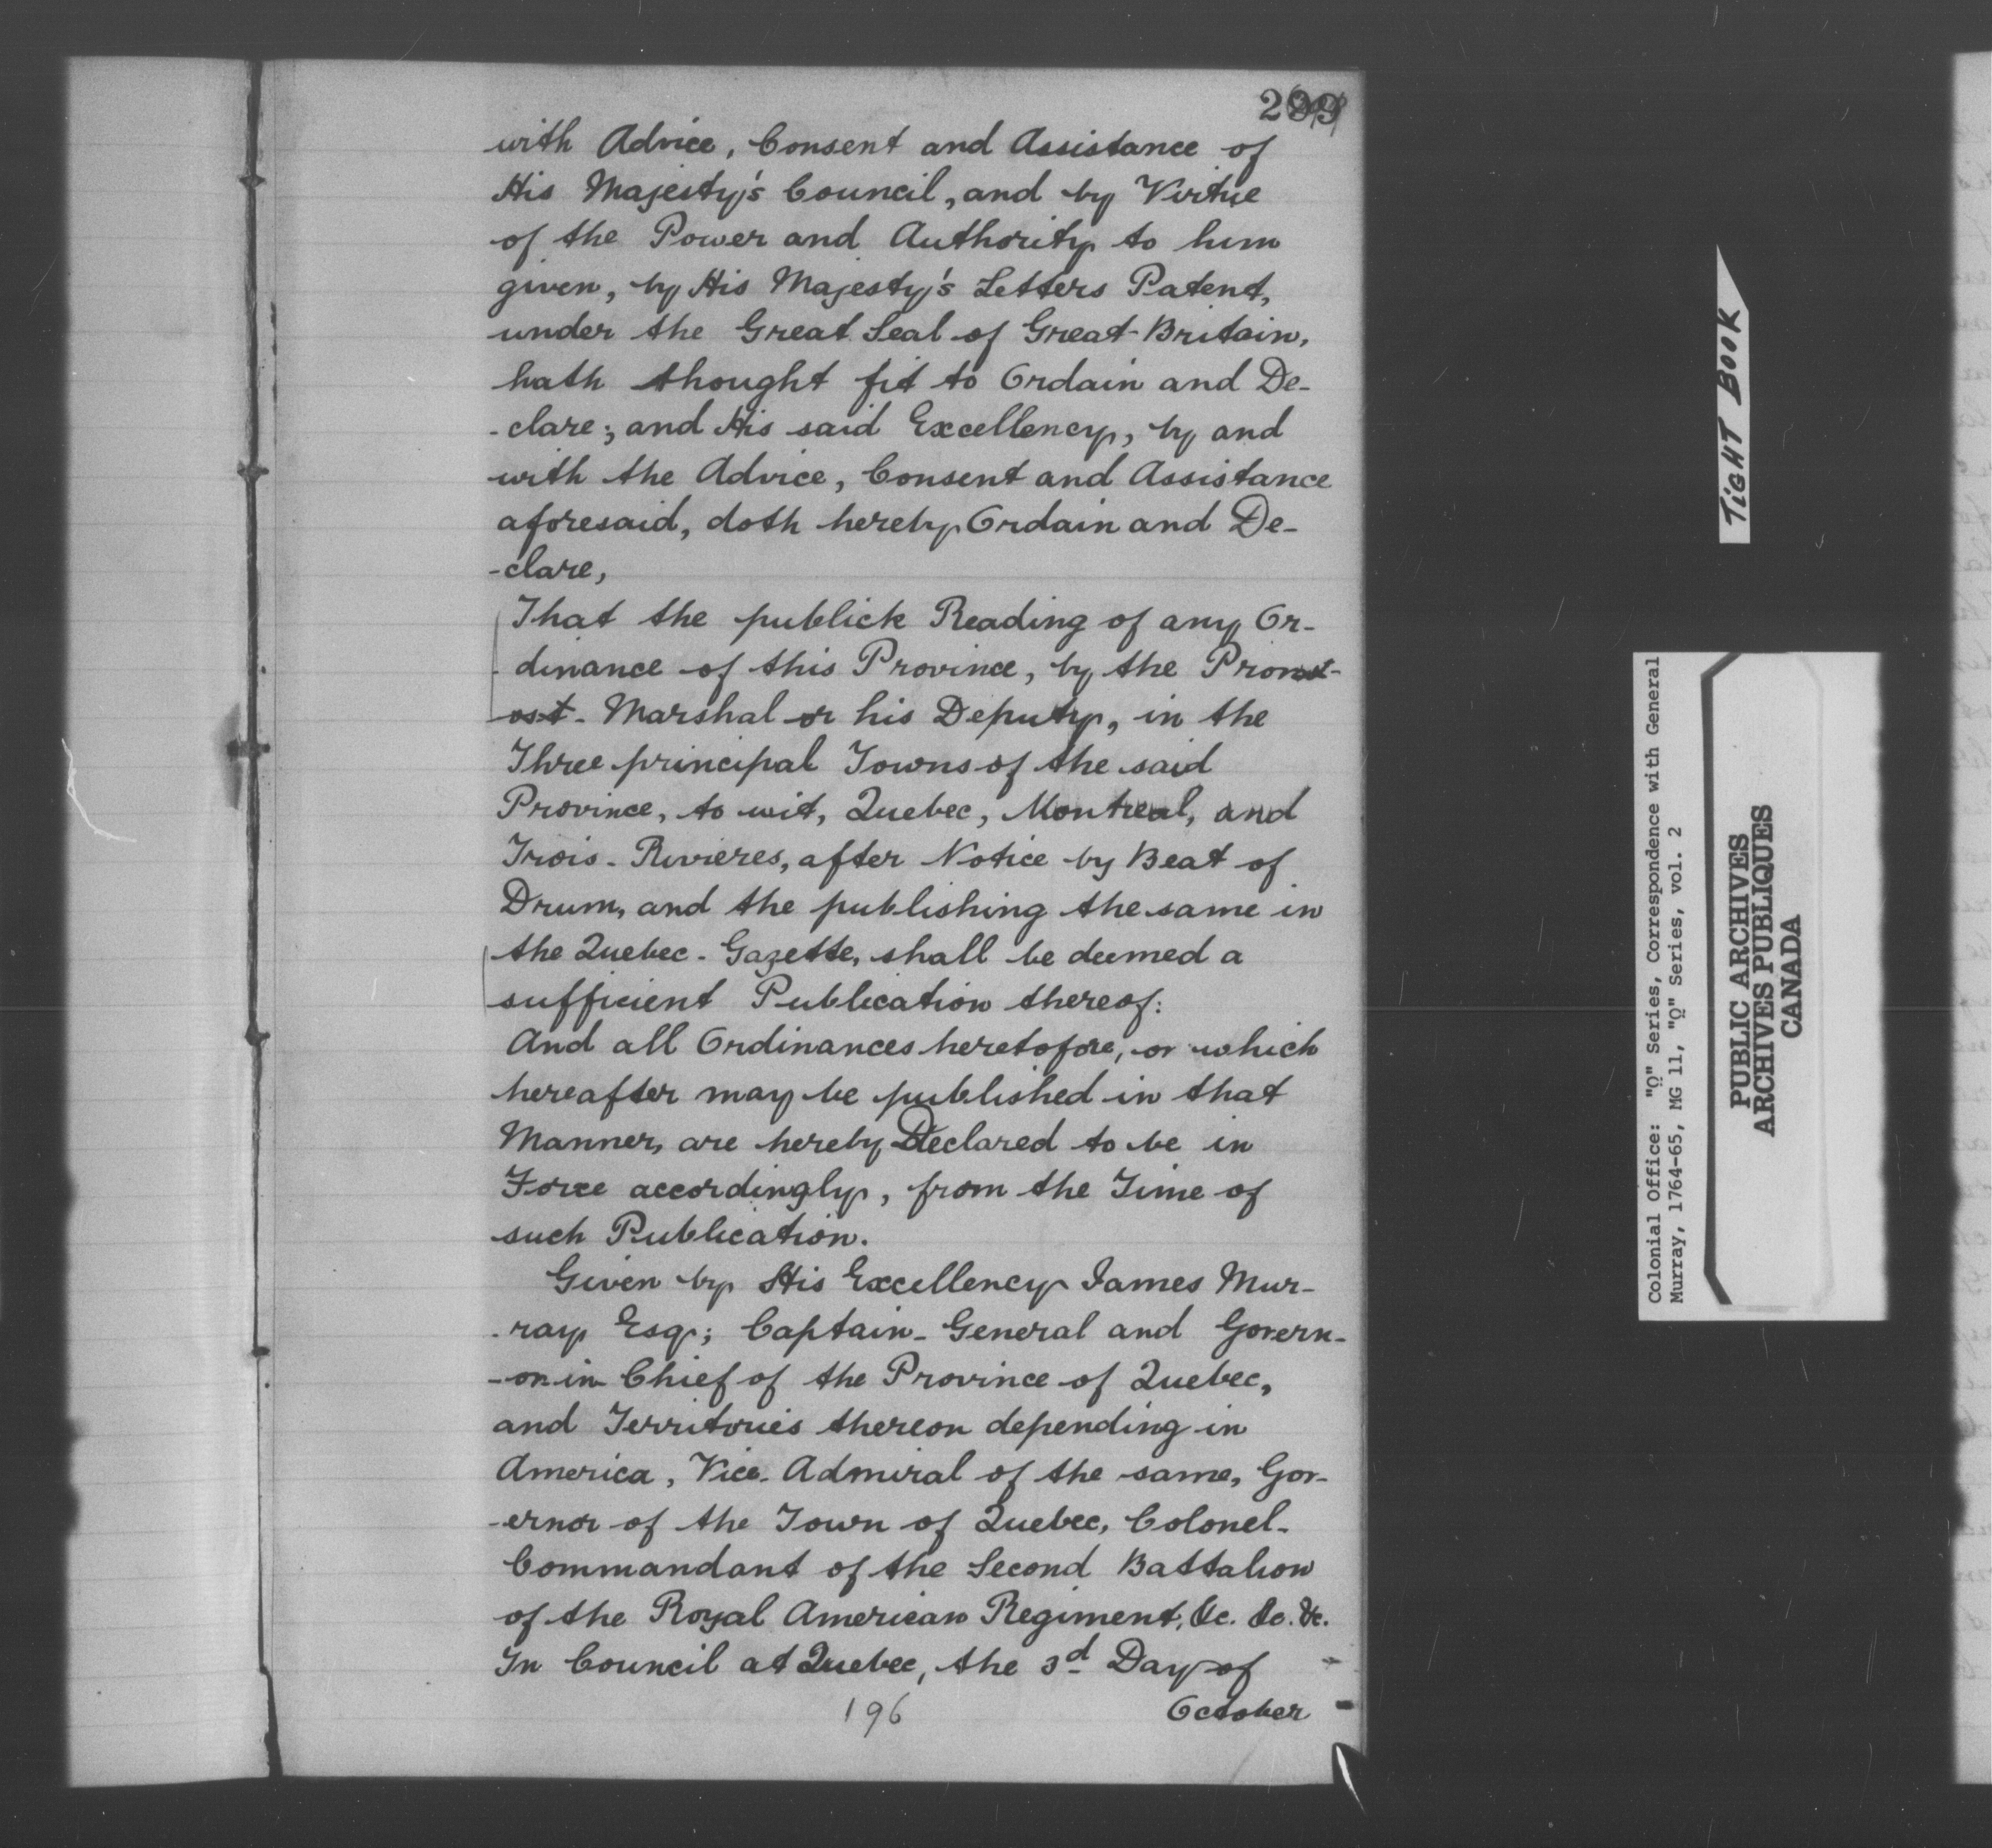 with Advice, Consent and Assistance of
His Majesty's Council, and by Virtue
of the Power and Authority to him
given, by His Majesty's Letters Patent,
under the Great Seal of Great-Britain,
hath thought fit to Ordain and De-
-clare; and His said Excellency, by and
with the Advice, Consent and Assistance
aforesaid, doth hereby Ordain and De-
-clare,
That the publick Reading of any Or-
-dinance of this Province, by the
Marshal or his Deputy, in the
Three principal Towns of the said
Province, to wit, Quebec, Montreal, and
Trois-Rivieres, after Notice by Beat of
Drum, and the publishing the same in
the Quebec-Gazette, shall be deemed a
sufficient Publication thereof:
And all Ordinances heretofore, or which
hereafter may be published in that
Manner, are hereby Declared to be in
Force accordingly, from the Time of
such Publication.
Given by His Excellency James Mur-
-ray Esq; Captain-General and Govern-
-or in Chief of the Province of Quebec,
and Territories thereon depending in
America, Vice-Admiral of the same, Gov-
-ernor of the Town of Quebec, Colonel-
Commandant of the Second Battalion
of the Royal American Regiment, &c. &c. &c.
In Council at Quebec, the 3d Day of
October
196
TIGHT BOOK
Colonial Office: "Q" Series, Correspondence with General
Murray, 1764-65, MG 11, "Q" Series, vol. 2
PUBLIC ARCHIVES
ARCHIVES PUBLIQUES
CANADA